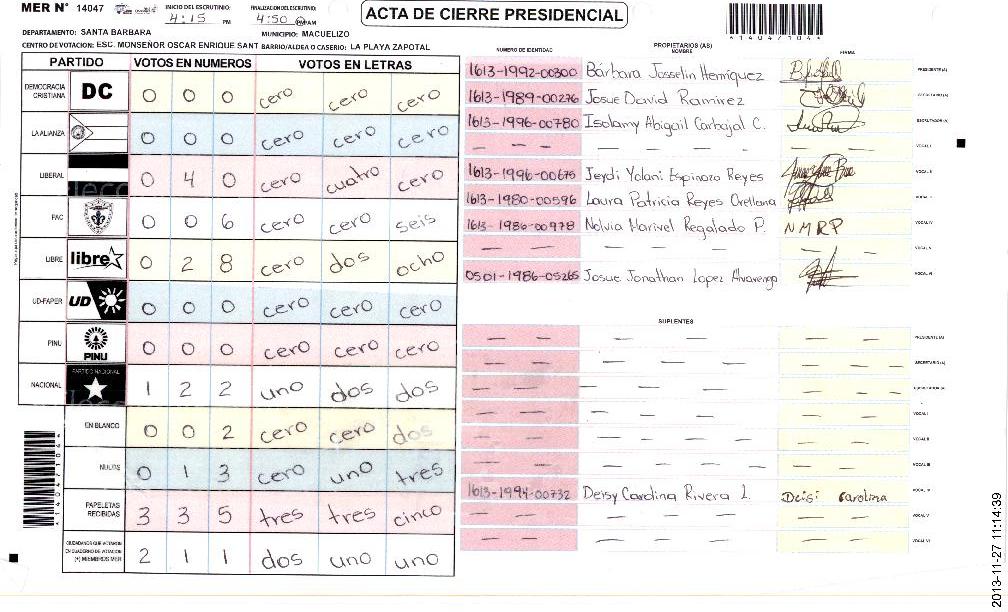 MER N° 14047
INICIO DEL ESCRUTINIO: 4:15 PM
FINALIZACION DEL ESCRUTINIO: 4:50 AM
ACTA DE CIERRE PRESIDENCIAL
*14047104*
DEPARTAMENTO: SANTA BARBARA
MUNICIPIO: MACUELIZO
CENTRO DE VOTACION: ESC. MONSEÑOR OSCAR ENRIQUE SANT BARRIO/ALDEA O CASERIO: LA PLAYA ZAPOTAL
PARTIDO VOTOS EN NUMEROS VOTOS EN LETRAS
DEMOCRACIA CRISTIANA DC 0 0 0 cero cero cero
LA ALIANZA 0 0 0 cero cero cero
LIBERAL 0 4 0 cero cuatro cero
PAC 0 0 6 cero cero seis
LIBRE libre 0 2 8 cero dos ocho
UD-FAPER UD 0 0 0 cero cero cero
PINU PINU 0 0 0 cero cero cero
NACIONAL PARTIDO NACIONAL 1 2 2 uno dos dos
EN BLANCO 0 0 2 cero cero dos
NULOS 0 1 3 cero uno tres
PAPELETAS RECIBIDAS 3 3 5 tres tres cinco
CIUDADANOS QUE VOTARON EN CUADERNO DE VOTACION (+) MIEMBROS MER 2 1 1 dos uno uno
NUMERO DE IDENTIDAD PROPIETARIOS (AS) NOMBRE FIRMA
1613-1992-00300 Bárbara Josselin Henríquez PRESIDENTE (A)
1613-1989-00276 Josue David Ramirez SECRETARIO (A)
1613-1996-00780 Isolamy Abigail Carbajal C. ESCRUTADOR (A)
— — — VOCAL I
1613-1996-00675 Jeydi Yolani Espinoza Reyes VOCAL II
1613-1980-00596 Laura Patricia Reyes Orellana VOCAL III
1613-1986-00978 Nolvia Marivel Regalado P. NMRP VOCAL IV
— — — — VOCAL V
0501-1986-05265 Josue Jonathan Lopez Alvarenga VOCAL VI
SUPLENTES
— — — — — — PRESIDENTE (A)
— — — — — — SECRETARIO (A)
— — — — — — ESCRUTADOR (A)
— — — — — — VOCAL I
— — — — — — VOCAL II
— — — — — — VOCAL III
1613-1994-00732 Deisy Carolina Rivera L. Deisi Carolina VOCAL IV
— — — — — — VOCAL V
— — — — — — VOCAL VI
2013-11-27 11:14:39